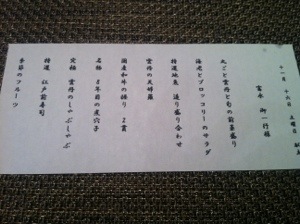 十一月 十六日 土曜日
富永 御一行様
丸ごと雲丹と旬の前菜盛り
海老とブロッコリーのサラダ
特選地魚 造り盛り合わせ
雲丹の天婦羅
国産和牛の握り 2貫
名物 8年前の煮穴子
究極 雲丹のしゃぶしゃぶ
特選 江戸前寿司
季節のフルーツ